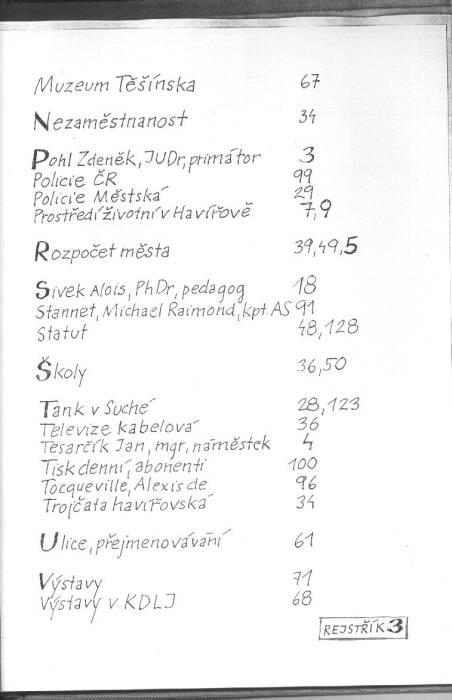 Muzeum Těšínska 67
Nezaměstnanost 34
Pohl Zdeněk, JUDr, primátor 3
Policie ČR 99
Policie Městská 29
Prostředí životní v Havířově 7,9
Rozpočet města 39,49,5
Sivek Alois, PhDr, pedagog 18
Stannet, Michael Raimond, kpt. AS 91
Statut 48,128
Školy 36,50
Tank v Suché 28,123
Televize kabelová 36
Tesarčík Jan, mgr, náměstek 4
Tisk denní, abonenti 100
Tocqueville, Alexis de 96
Trojčata havířovská 34
Ulice, přejmenovávání 61
Výstavy 71
Výstavy v KDLJ 68
REJSTŘÍK 3